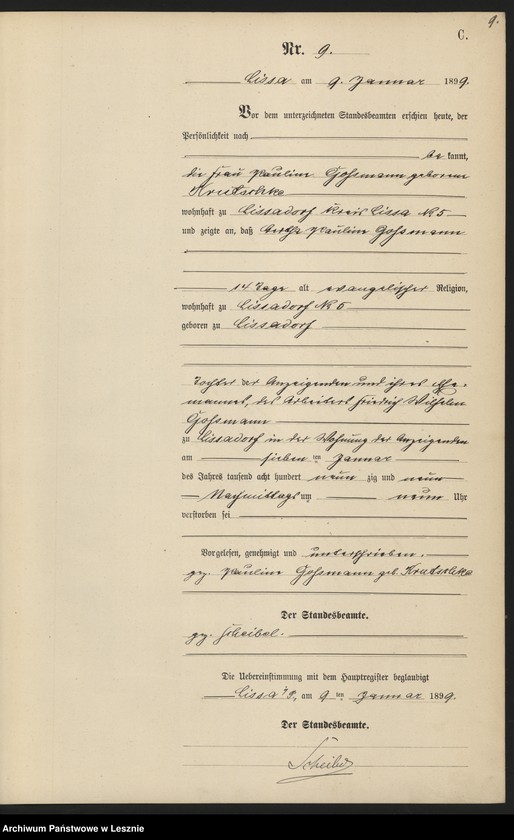 9.
C.
Nr. 9.
Lissa am 9. Januar 1899.
Vor dem unterzeichneten Standesbeamten erschien heute, der
Persönlichkeit nach
be kannt,
die Frau Pauline Gohsmann geborene
Krutschke
wohnhaft zu Lissadorf Kreis Lissa No 5
und zeigte an, daß Bertha Pauline Gohsmann
14 Tage alt evangelischer Religion,
wohnhaft zu Lissadorf No 5
geboren zu Lissadorf
Tochter der Anzeigenden und ihres Ehe-
mannes, des Arbeiters Friedrich Wilhelm
Gohsmann
zu Lissadorf in der Wohnung der Anzeigenden
am sieben ten Januar
des Jahres tausend acht hundert neun zig und neun
Nachmittags um neun Uhr
verstorben sei
Vorgelesen, genehmigt und unterschrieben.
gez. Pauline Gohsmann geb. Krutschke
Der Standesbeamte.
gez. Scheibel.
Die Uebereinstimmung mit dem Hauptregister beglaubigt
Lissa i/P, am 9 ten Januar 1899.
Der Standesbeamte.
Scheibel
Archiwum Państwowe w Lesznie